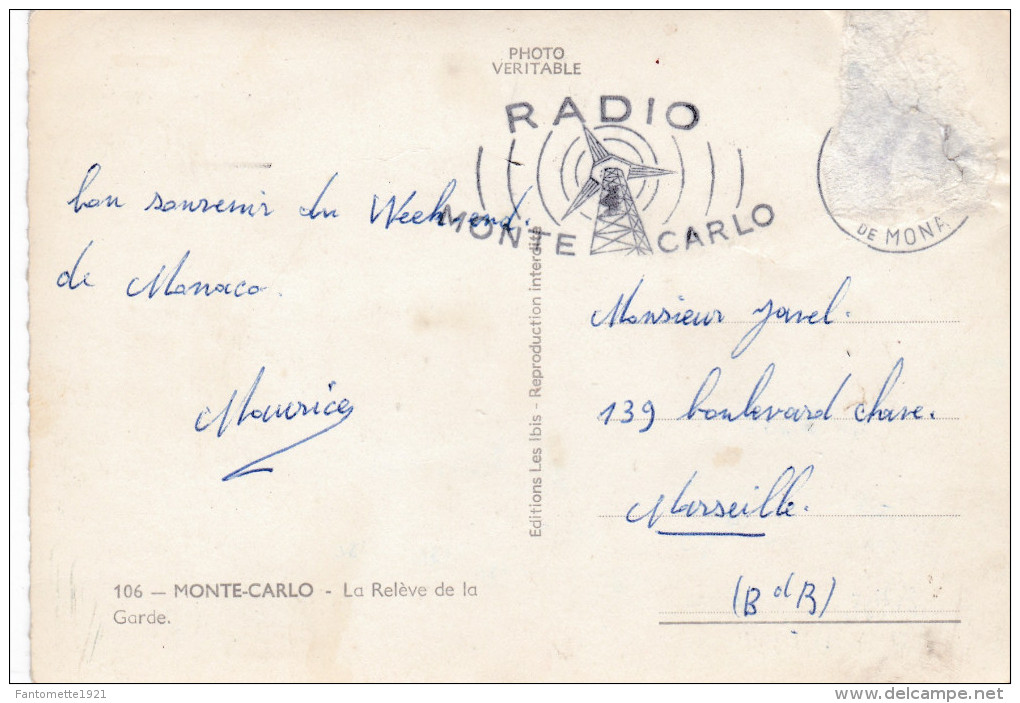 PHOTO
VERITABLE
RADIO
MONTE CARLO
DE MONA
bon souvenir du Week-end.
de Monaco.
Maurice
Editions Les Ibis - Reproduction interdite
Monsieur Javel.
139 boulevard chave.
Marseille.
(B d R)
106 — MONTE-CARLO - La Relève de la
Garde.
Fantomette1921
www.delcampe.net